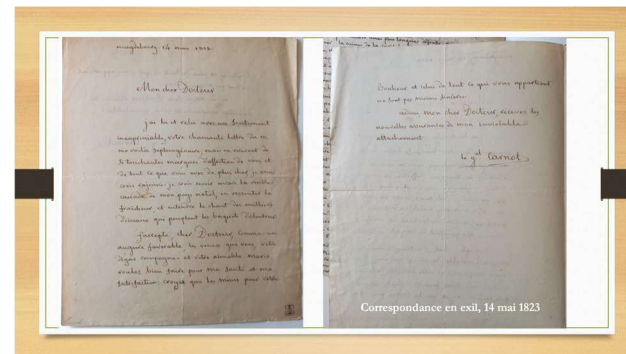 magdebourg 14 mai 1823
Mon cher Dortérer
j'ai lu et relu avec un sentiment
inexprimable, votre charmante lettre. Je
me voilà septuagénaire, mais en recevant de
si touchantes marques d'affection de vous et
de tout ce que vous avez de plus cher je me
crois rajeuni. je crois revoir encore la vieille
de mon pays natal, en ressentir la
fraîcheur, et entendre le chant des milliers
d'oiseaux qui peuplent les
j'accepte, cher comme un
augure favorable, les voeux que vous, votre
digne compagne et votre aimable marie
voulez bien faire pour ma santé et ma
satisfaction. croyez que les miens pour votre
bonheur et celui de tout ce qui vous appartient
ne sont pas moins sincères.
adieu, mon cher recevez les
nouvelles assurances de mon inviolable
attachement.
le gal Carnot
Correspondance en exil, 14 mai 1823